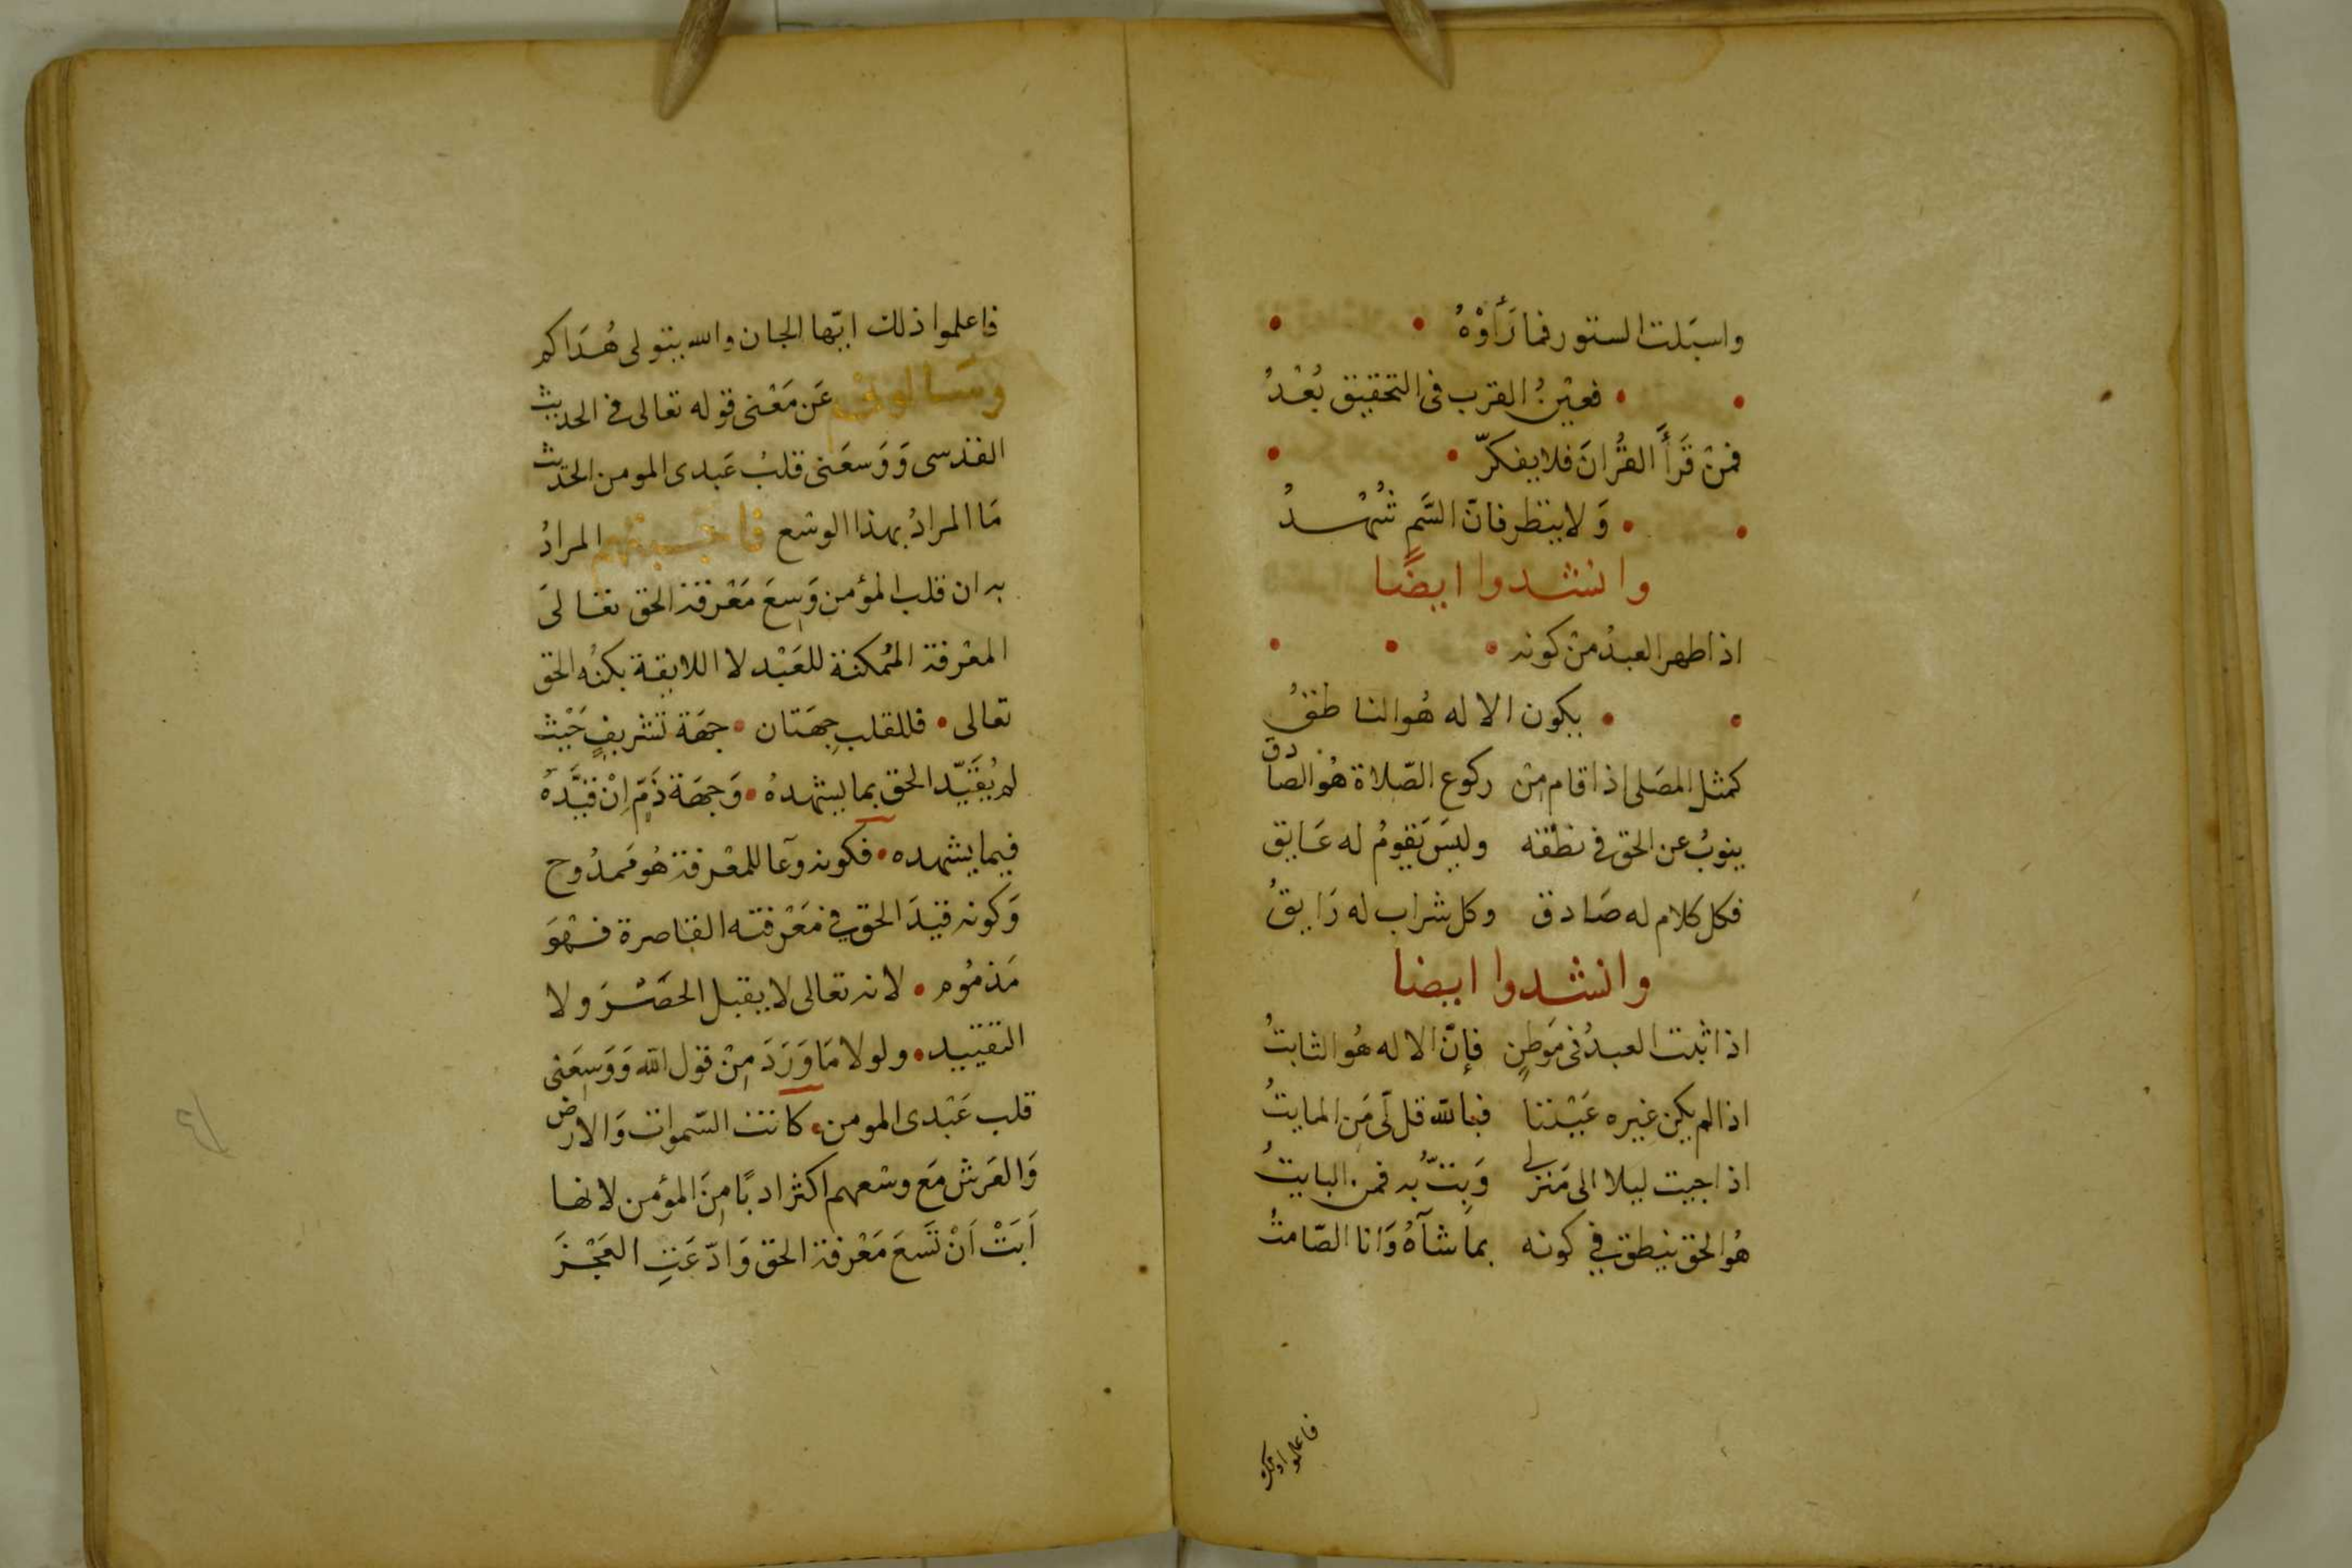 واسبَلت الستور فما رَأَوْهُ
فعيْنُ القرب فى التحقيق بُعْدُ
فمنْ قَرَأَ القُرانَ فلا يفكرّ
وَلا ينظر فانّ السَّم شُهْدُ
وانشدوا ايضًا
اذا طهر العبدُ منْ كونه
يكون الاله هُو الناطقُ
كمثل المصَلى اذا قام مِنْ ركوع الصّلاة هُو الصّادق
ينوبُ عن الحق فى نطْقه وليسَ يَقومُ له عَايق
فكل كلام له صَادق وكل شراب له رَايقُ
وانشدوا ايضا
اذا ثبت العبدُ فى مَوطنٍ فإنّ الاله هُو الثابتُ
اذا لم يكن غيره عَيْننا فبالله قل لّى مَن المايتُ
اذا جيت ليلا الى مَنزلى وَبِتّ به فمن البايتُ
هُو الحق ينطق فى كونه بما شآهُ وَانا الصّامتُ
فاعلموا ذلك
فاعلموا ذلك ايّها الجان والله يتولى هُدَاكم
وسَالونى عَن مَعْنى قوله تعالى فى الحديث
القدسى وَوَسعَنى قلبُ عَبدى المومن الحَديث
مَا المرادُ بهذا الوسْع فاجبتهم المرادُ
به ان قلب المؤمن وَسِعَ مَعْرفة الحق تعَالىَ
المعْرفة المُمكنة للعَبْد لا اللايقة بكنُه الحق
تعالى فللقلب جِهَتان جهَة تَشريفٍ حَيْث
لم يُقَيّد الحق بما يشهدهُ وَجهَة ذَمٍّ اِنْ قيَّدَهُ
فيما يشهده فكونه وعآ للمعْرفة هُو مَمدُوح
وَكونه قيدَ الحق فى مَعْرفته القاصرة فهْوَ
مَذمُوم لانه تعالى لا يقبل الحصَْرَ ولا
التقييد ولولا مَا وَرَدَ مِنْ قول الله وَوَسِعَنى
قلب عَبْدى المومن كانت السّموات وَالارض
وَالعَرش مَع وسْعهم اكثر ادبًا مِنَ المؤمن لانها
اَبَتْ اَنْ تَسَعَ مَعْرفة الحق وَادّعَتِ العَجْزَ